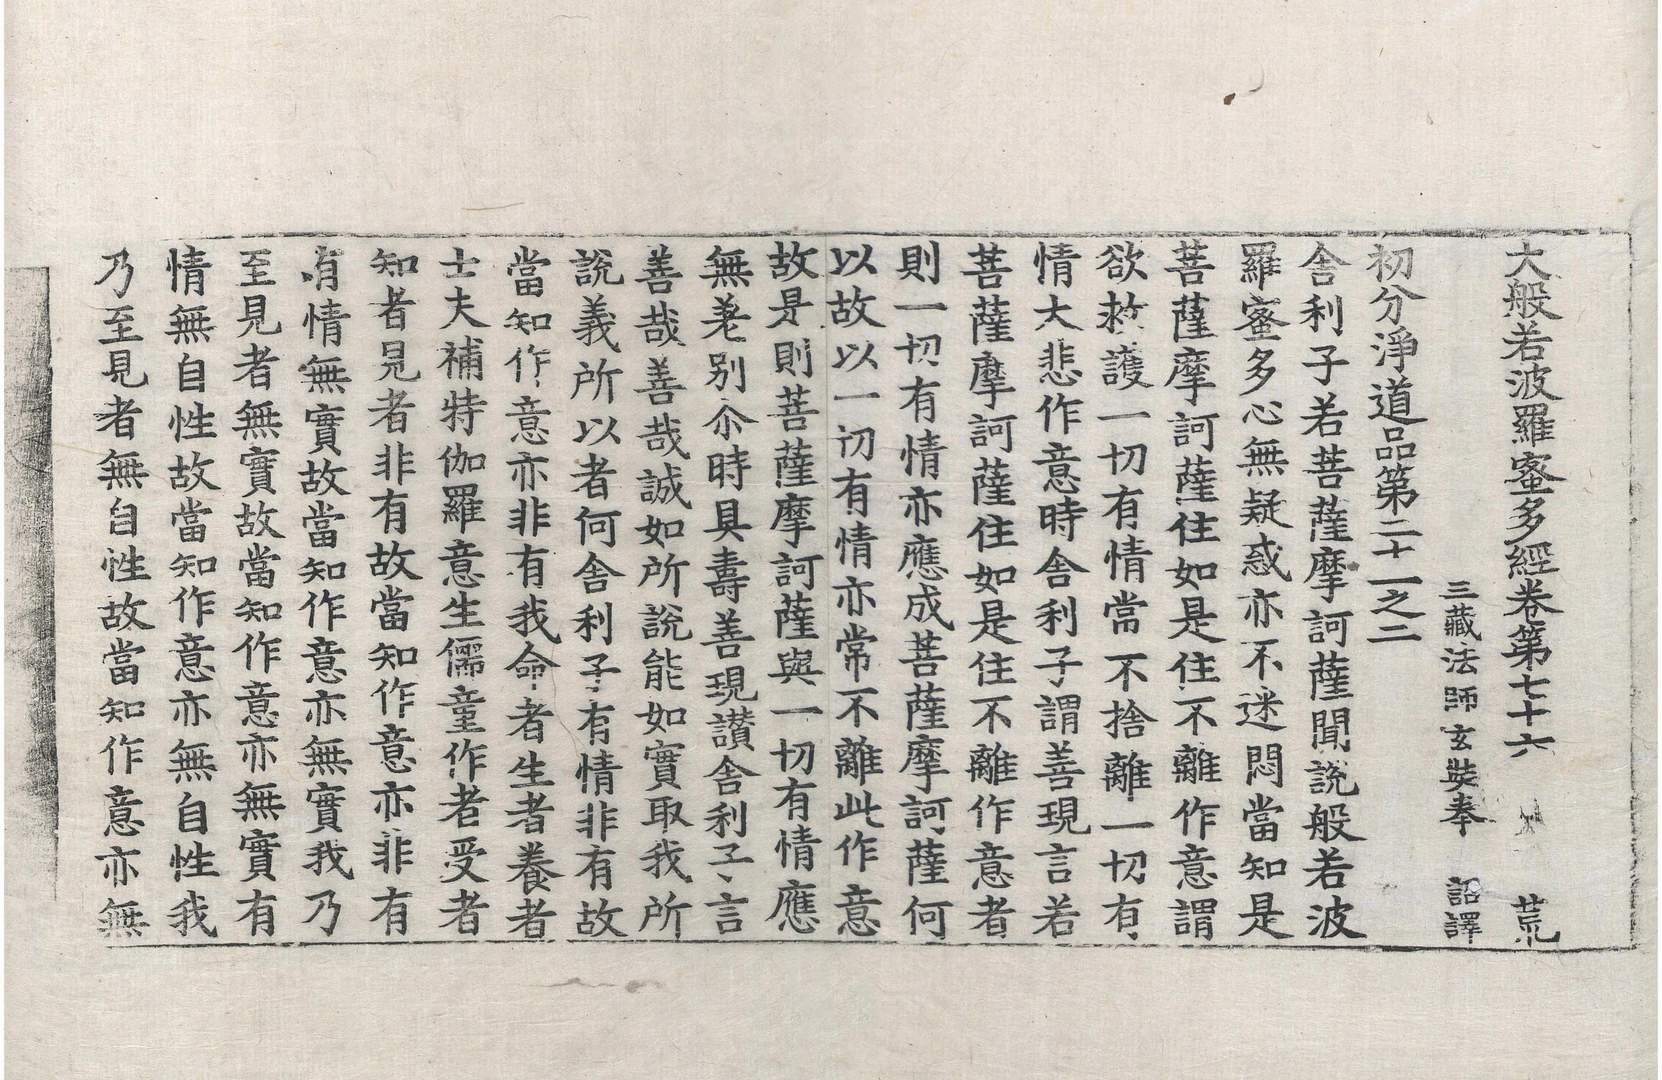 大般若波羅蜜多經卷第七十六 荒
三藏法師玄奘奉 詔譯
初分淨道品第二十一之二
舍利子若菩薩摩訶薩聞說般若波
羅蜜多心無疑惑亦不迷悶當知是
菩薩摩訶薩住如是住不離作意謂
欲救護一切有情常不捨離一切有
情大悲作意時舍利子謂善現言若
菩薩摩訶薩住如是住不離作意者
則一切有情亦應成菩薩摩訶薩何
以故以一切有情亦常不離此作意
故是則菩薩摩訶薩與一切有情應
無差別尒時具壽善現讃舍利子言
善哉善哉誠如所說能如實取我所
說義所以者何舍利子有情非有故
當知作意亦非有我命者生者養者
士夫補特伽羅意生儒童作者受者
知者見者非有故當知作意亦非有
有情無實故當知作意亦無實我乃
至見者無實故當知作意亦無實有
情無自性故當知作意亦無自性我
乃至見者無自性故當知作意亦無